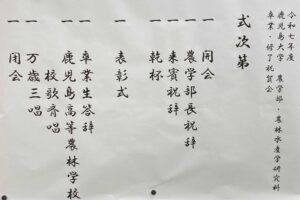 令和七年度
鹿児島大学 農学部・農林水産学研究科
卒業・修了祝賀会
式次第
一 開会
一 農学部長祝辞
一 来賓祝辞
一 乾杯
一 表彰式
一 卒業生答辞
鹿児島高等農林学校
校歌斉唱
一 万歳三唱
一 閉会